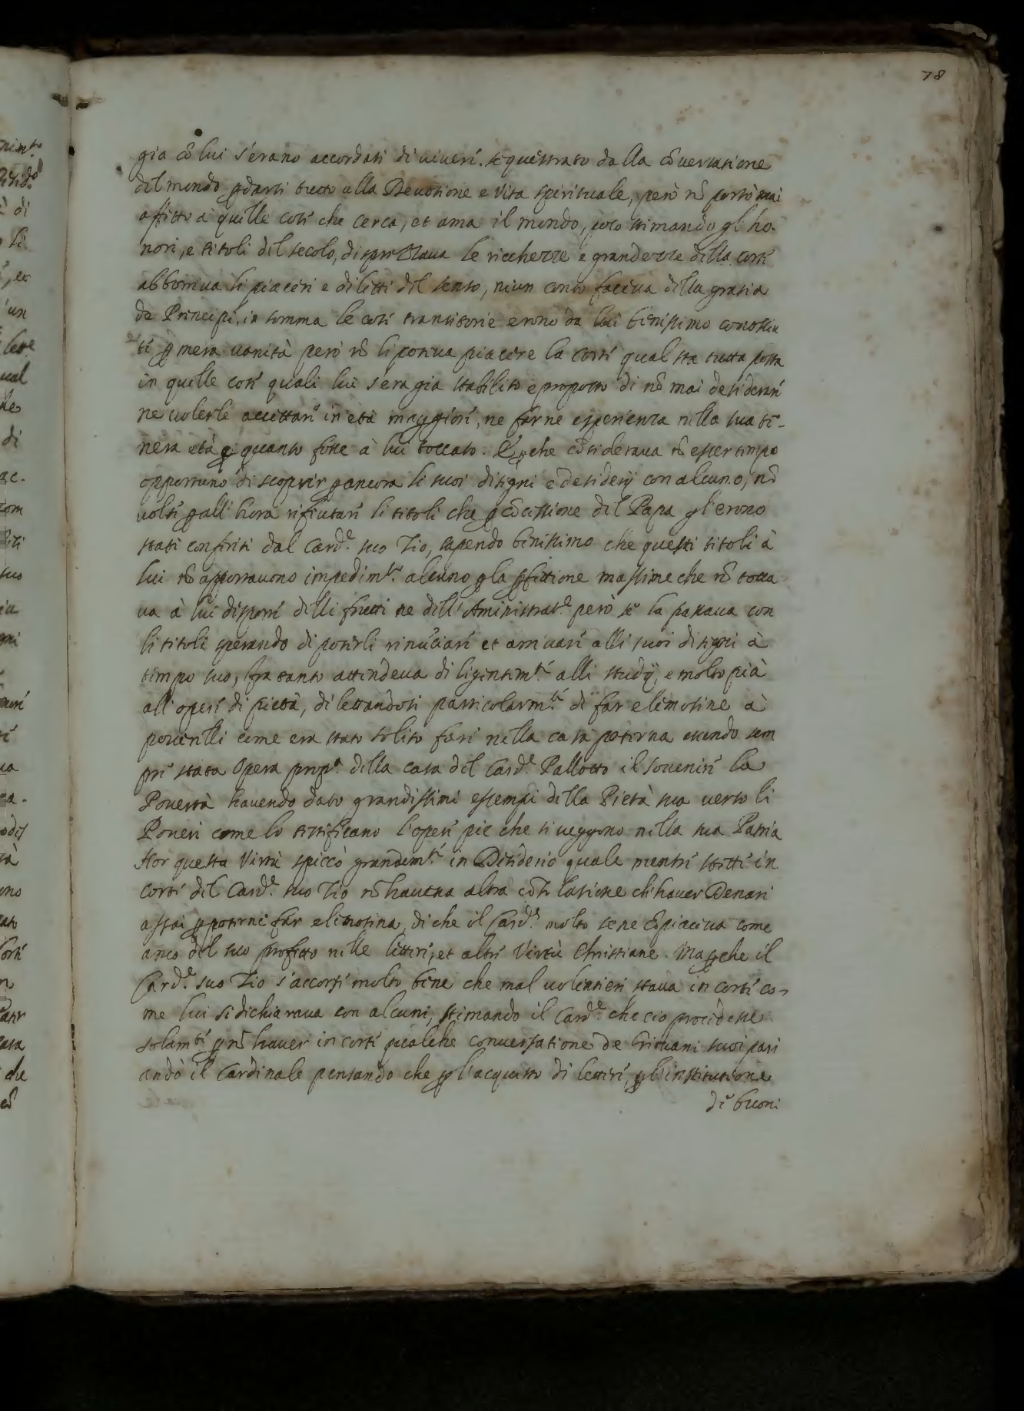 78
gia cõ lui s'erano accordati di viveri. sequestrato dalla cõversatione
del mondo, ꝑ darsi tutto alla Devotione e vita spirituale, però nõ portò mai
affetto a quelle cose che cerca, et ama il mondo, poco stimando gl'ho-
nori, e titoli del secolo, disprezzava le ricchezze e grandezze della corte
abborriva li piaceri e diletti del senso, niun conto faceva della gratia
de Principi, in somma le cose transitorie erono da lui benissimo conosciu
te ꝑ mera vanità però nõ li poteva piacere la corte qual sta tutta posta
in quelle cose quali lui s'era gia stabilito e proposto di nõ mai desiderar
ne volerle accettare in età maggiore, ne farne esperienza nella sua te-
nera età ꝑ quanto fosse à lui toccato. E ꝑche cõsiderava nõ esser tempo
opportuno di scoprir ꝑ ancora li suoi disegni e desiderij con alcuno, nõ
volse ꝑ all'hora rifiutare li titoli che ꝑ cõcessione del Papa gl'erono
stati conferiti dal Card.e suo Zio, sapendo benissimo che questi titoli à
lui nõ apportavono impedim.to alcuno ꝑ la ꝑfettione massime che nõ tocca
va à lui disporre delli frutti ne dell'Aministrat.e però se la passava con
li titoli sperando di poterli rinũciare et arrivare alli suoi disegni à
tempo suo, fra tanto attendeva diligentem.te alli studij, e molto più
all'opere di pietà, dilettandosi particolarm.te di far elemosine à
poverelli come era stato solito fare nella casa paterna essendo sem
pre stata Opera propr.a della casa del Card.e Pallotto il sovenire la
Povertà havendo dato grandissimi essempi della Pietà sua verso li
Poveri come lo testificano l'opere pie che si veggono nella sua Patria
Hor questa Virtù spiccò grandem.te in Desiderio quale mentre stette in
corte del Card.e suo Zio nõ haveva altra cõsolatione ch'haver Denari
assai ꝑ poterne far elemosina, di che il Card.e molto se ne cõpiaceva come
anco del suo profitto nelle lettere, et altre Virtù Christiane. Ma ꝑche il
Card.e suo Zio s'accorse molto bene che mal volentieri stava in corte co-
me lui si dichiarava con alcuni, stimando il Card.e che ciò procedesse
solam.te ꝑ nõ haver in corte qualche conversatione de Giovani suoi pari
andò il Cardinale pensando che ꝑ l'acquisto di lettere, ꝑ l'institutione
de buoni